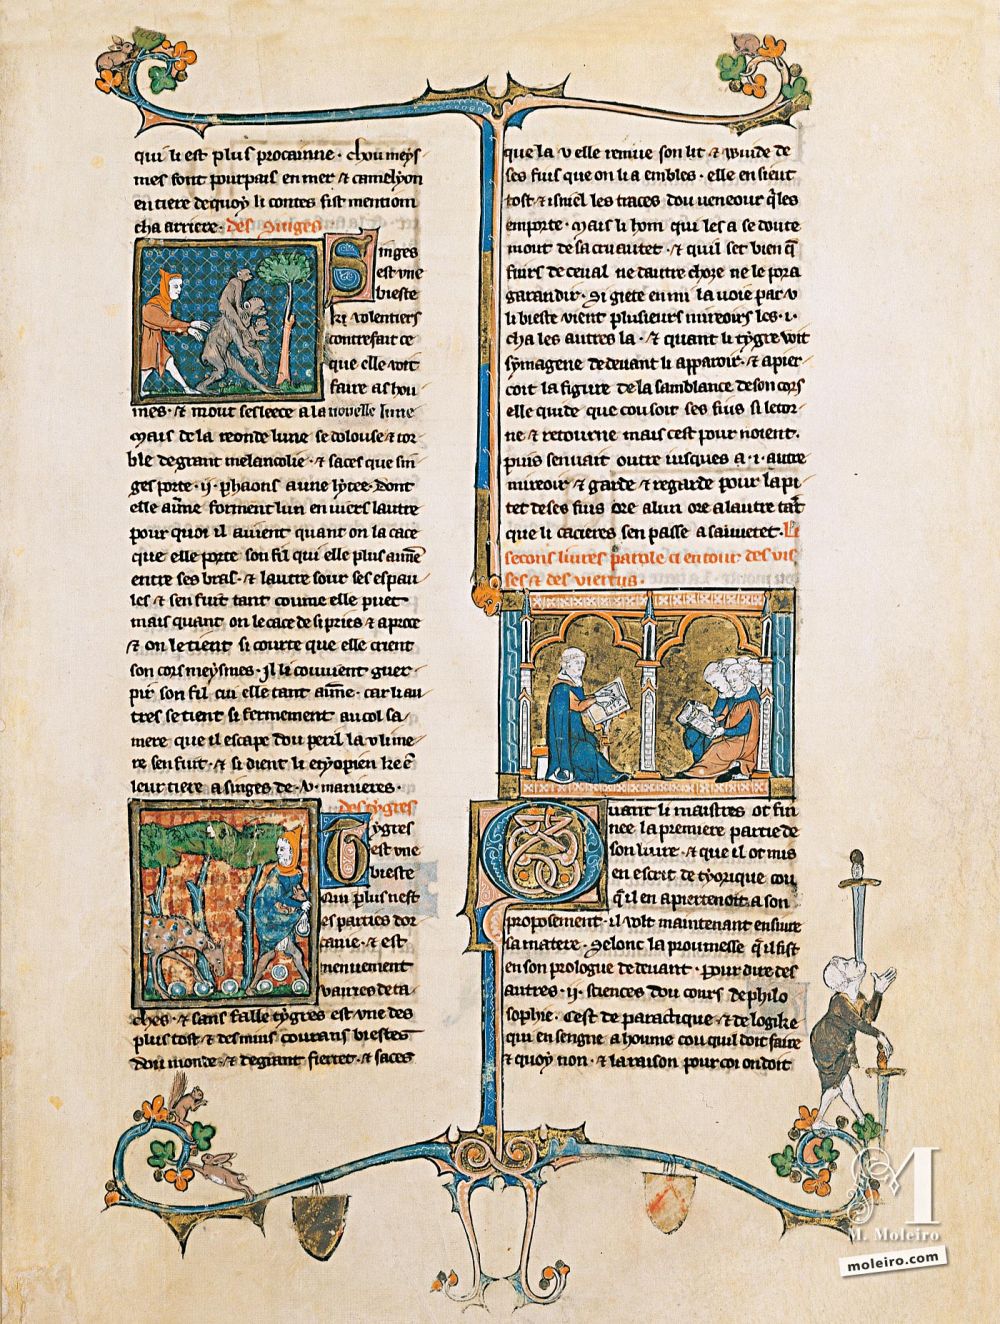 qui li est plus procainne · chou meys
mes font pourpais en mer & camelyon
en tiere de quoy li contes fist mention
cha arriere · des singes
Singes
est vne
bieste
ki volentiers
contrefait ce
que elle voit
faire as hou
mes · & mout sesleece a la nouelle lune
Mais de la reonde lune se dolouse & tor
ble de grant melancolie · & saces que sin
ges porte · ij · phaons a vne lytee · Dont
elle aime forment lun en viers lautre
pour quoi il auient quant on la cace
que elle porte son fil qui elle plus aime
entre ses bras · & lautre sour ses espau
les & sen fuit tant coume elle puet ·
mais quant on le cace de si pries & aproce
& on le tient si courte que elle crient
son cors meysmes · Il li couuient guer
pir son fil cui elle tant aime · car li au
tres se tient si fermement au col sa
mere que il escape dou peril la v li me
re sen fuit · & si dient li etyopien ke en
leur tiere a singes de · v · manieres ·
des tygres
Tygres
est vne
bieste
qui plus nest
es parties dor
canie · & est
menuement
vairies de ta
ches · & sans falle tygres est vne des
plus tost & des mius courans biestes
dou monde · & de grant fierret · & saces
que la v elle remue son lit & wuide de
ses fius que on li a embles · elle en sieut
tost & isniel les traces dou veneour qi les
emporte · Mais li hom qui les a se doute
mout de sa cruautet · & quil set bien q
fuirs de ceual ne dautre chose ne le pora
garandir · Si giete en mi la voie par v
li bieste vient plusieurs mireoirs les · i ·
cha les autres la · & quant li tygre voit
symagene de deuant li apparoir · & apier
coit la figure de la samblance de son cors
elle quide que cou soit ses fius si le tor
ne & retourne mais cest pour noient ·
puis sen vait outre iusques a · i · autre
mireoir & garde & regarde pour la pi
tet de ses fius ore a lun ore a lautre tant
que li cacieres sen passe a sauuetet · Li
secons liures parole ci entour des vis
ses & des viertus ·
Quant li maistres ot fur
nee la premiere partie de
son liure · & que il ot mis
en escrit de tyorique cou
qil en apiertenoit a son
proposement · il volt maintenant ensiure
sa matere · Selonc la proumesse qil fist
en son prologue de deuant · pour dire des
autres · ij · sciences dou cours de philo
sophie · cest de paractique · & de logike
qui ensengne a houme cou quil doit faire
& quoy non · & la raison pour coi on doit
M
M. Moleiro
moleiro.com